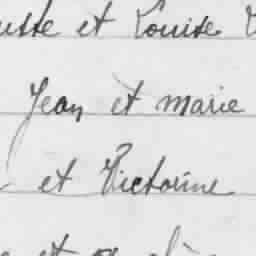 et Louise
Jean et marie
et Victorine
et